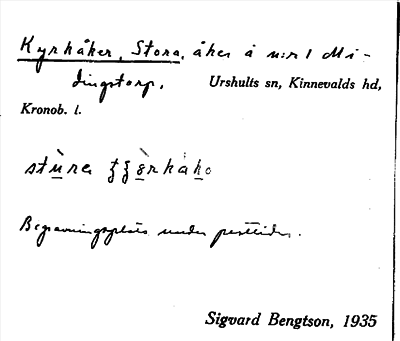 Kyrkåker, Stora, åker å n:r 1 Mi-
dingstorp. Urshults sn, Kinnevalds hd,
Kronob. l.
Begravningsplats under pesttiden.
Sigvard Bengtson, 1935